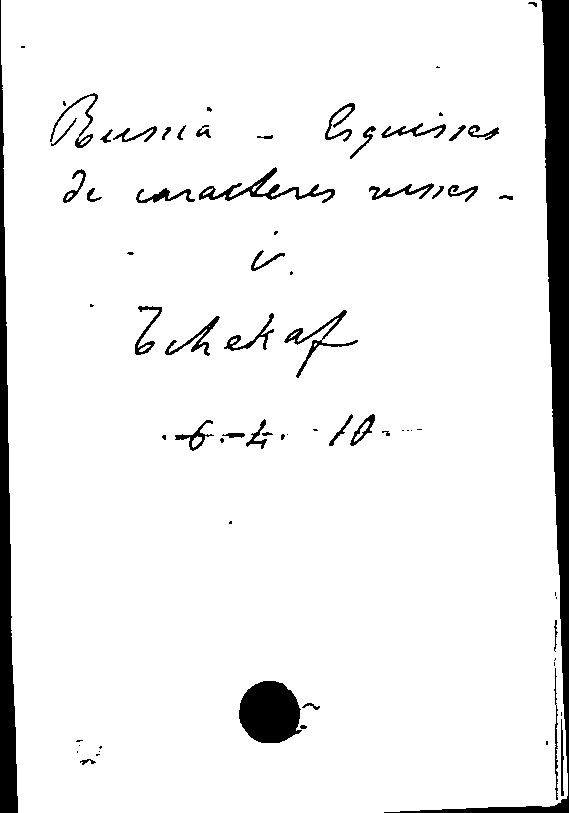 Russia - Esquisses
de caracteres russes -
v.
Tchekaf
6-4. 10.